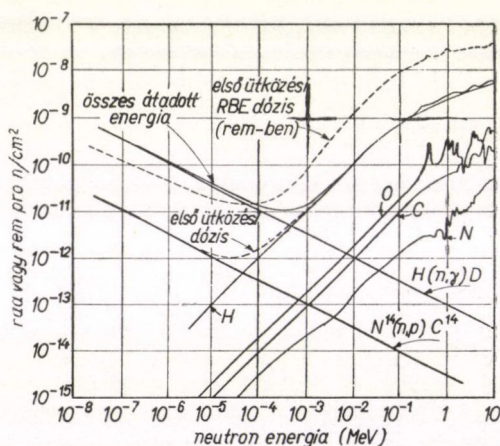 10⁻⁷
10⁻⁸
10⁻⁹
10⁻¹⁰
10⁻¹¹
10⁻¹²
10⁻¹³
10⁻¹⁴
10⁻¹⁵
raa vagy rem pro n/cm²
összes átadott
energia
első ütközési
RBE dózis
(rem-ben)
első ütközési
dózis
O
C
N
H
H(n,γ)D
N¹⁴(n,p)C¹⁴
10⁻⁸ 10⁻⁷ 10⁻⁶ 10⁻⁵ 10⁻⁴ 10⁻³ 10⁻² 10⁻¹ 1 10
neutron energia (MeV)